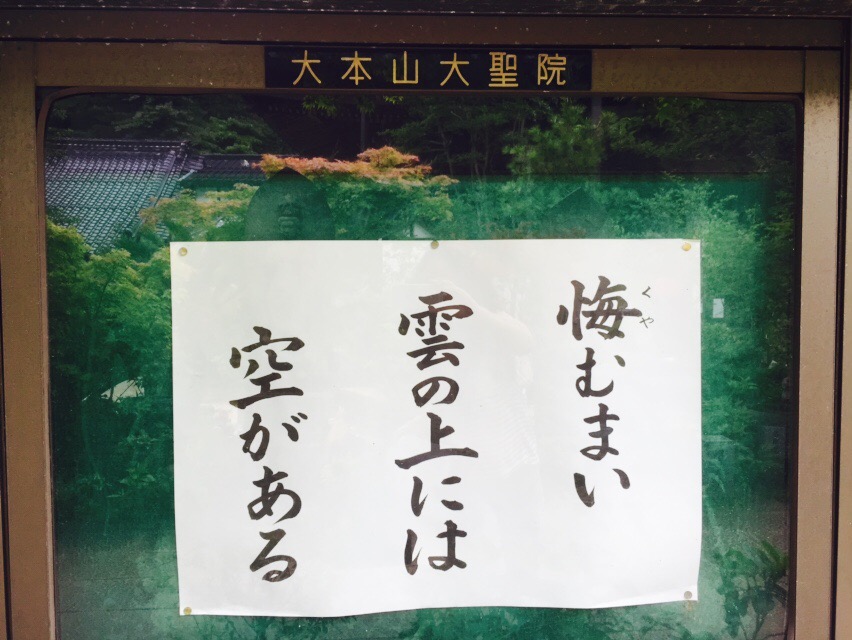 大本山大聖院
悔むまい
くや
雲の上には
空がある